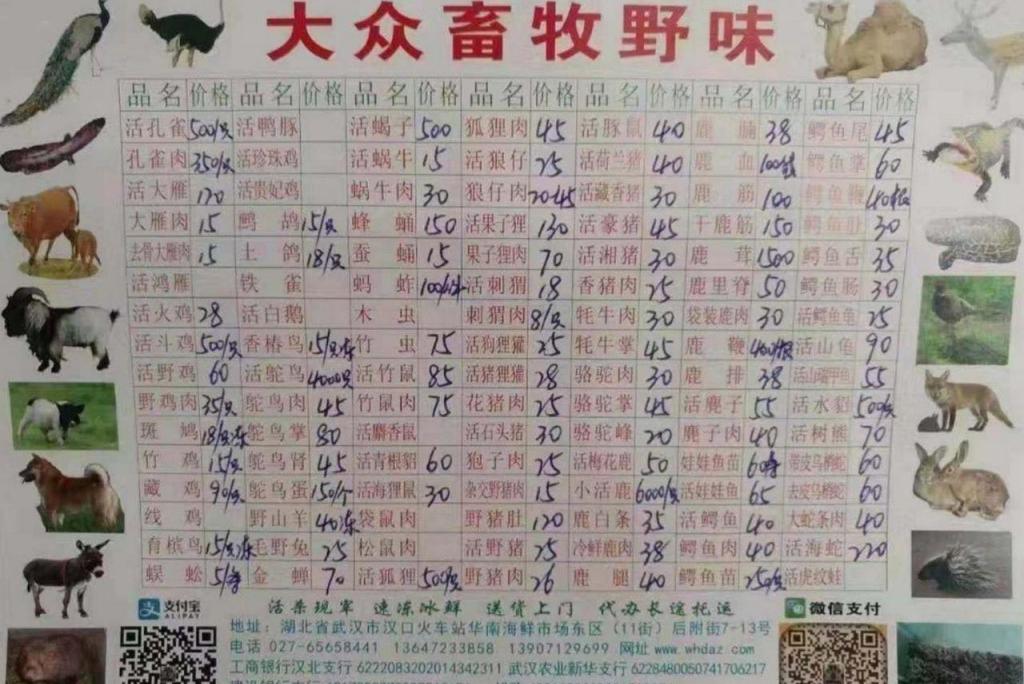 大众畜牧野味
品名 价格 品名 价格 品名 价格 品名 价格 品名 价格 品名 价格 品名 价格
活孔雀 500/只 活鸭豚 活蝎子 500 狐狸肉 45 活豚鼠 40 鹿 38 鳄鱼尾 45
孔雀肉 350/只 活珍珠鸡 活蜗牛 15 活狼仔 25 活荷兰猪 40 鹿血 鳄鱼掌 60
活大雁 120 活贵妃鸡 蜗牛肉 30 狼仔肉 20-45 活藏香猪 30 鹿筋 100 鳄鱼鞭
大雁肉 15 鹧鸪 15/只 蜂蛹 150 活果子狸 130 活豪猪 45 干鹿筋 150 鳄鱼肚 30
去骨大雁肉 15 土鸽 18/只 蚕蛹 15 果子狸肉 70 活湘猪 30 鹿茸 1500 鳄鱼舌 35
活鸿雁 铁雀 蚂蚱 活刺猬 18 香猪肉 25 鹿里脊 50 鳄鱼肠 30
活火鸡 28 活白鹅 木虫 刺猬肉 8/只 牦牛肉 30 袋装鹿肉 30 活鳄鱼龟 25
活斗鸡 500/只 香椿鸟 15/只冻 竹虫 75 活狗狸獾 25 牦牛掌 45 鹿鞭 活山龟 90
活野鸡 60 活鸵鸟 4000只 活竹鼠 85 活猪狸獾 28 骆驼肉 30 鹿排 38 55
野鸡肉 35/只 鸵鸟肉 45 竹鼠肉 75 花猪肉 25 骆驼掌 45 活麂子 55 活水貂 500/只
斑鸠 18/只冻 鸵鸟掌 80 活麝香鼠 活石头猪 30 骆驼峰 20 麂子肉 40 活树熊 70
竹鸡 15/只 鸵鸟肾 45 活青根貂 60 狍子肉 25 活梅花鹿 50 娃娃鱼苗 带皮乌梢蛇 60
藏鸡 90/只 鸵鸟蛋 150/个 活海狸鼠 30 杂交野猪肉 15 小活鹿 6000/只 活娃娃鱼 65 去皮乌梢蛇 60
线鸡 野山羊 40冻 袋鼠肉 野猪肚 120 鹿白条 35 活鳄鱼 40 大蛇条肉 40
育槟鸟 15/只冻 毛野兔 25 松鼠肉 活野猪 25 冷鲜鹿肉 38 鳄鱼肉 40 活海蛇 220
蜈蚣 金蝉 70 活狐狸 500/只 野猪肉 26 鹿腿 40 鳄鱼苗 250/只 活虎纹蛙
支付宝 ALIPAY 活杀现宰 速冻冰鲜 送货上门 代办长途托运 微信支付
地址：湖北省武汉市汉口火车站华南海鲜市场东区（11街）后附街7-13号
电话 027-65658441 13647233858 13907129699 网址 www.whdaz.com
工商银行汉北支行 6222083202014342311 武汉农业新华支行 6228480050741706217